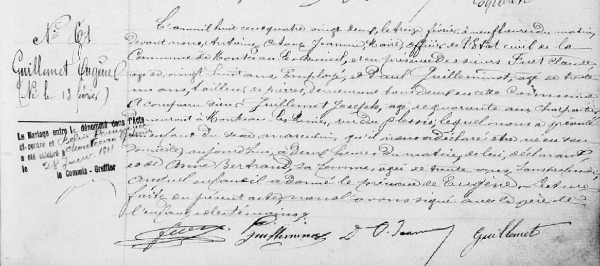 N° 61
Guillemet Eugène
(Né le 13 février)
Le Mariage entre le dénommé dans l'Acte
ci-contre et
a été célébré à
le 1911
le Commis-Greffier
L'an mil huit cent quatre vingt deux, le treize février, à neuf heures du matin,
devant nous, Antoine Jeannin, Maire, officier de l'Etat civil de la
Commune de Montceau les Mines, et en présence des sieurs Furet Claude,
âgé de vingt huit ans, Employé, et Paul Guilleminot, âgé de trente
ans, tailleur de pierres, demeurant tous deux en cette Commune
A comparu sieur Guillemet Joseph, âgé de quarante ans, Charpentier,
demeurant à Montceau les Mines, rue du Plessis, lequel nous a présenté
un enfant du sexe masculin, qu'il nous a déclaré être né en son
domicile, aujourd'hui, à deux heures du matin, de lui, déclarant,
et de Anne Bertrand, sa femme, âgée de trente ans, sans profession,
auquel enfant il a donné le prénom de Eugène. Lecture
faite du présent acte, nous l'avons signé avec le père de
l'enfant et les témoins.
Furet Guilleminot Jeannin Guillemet